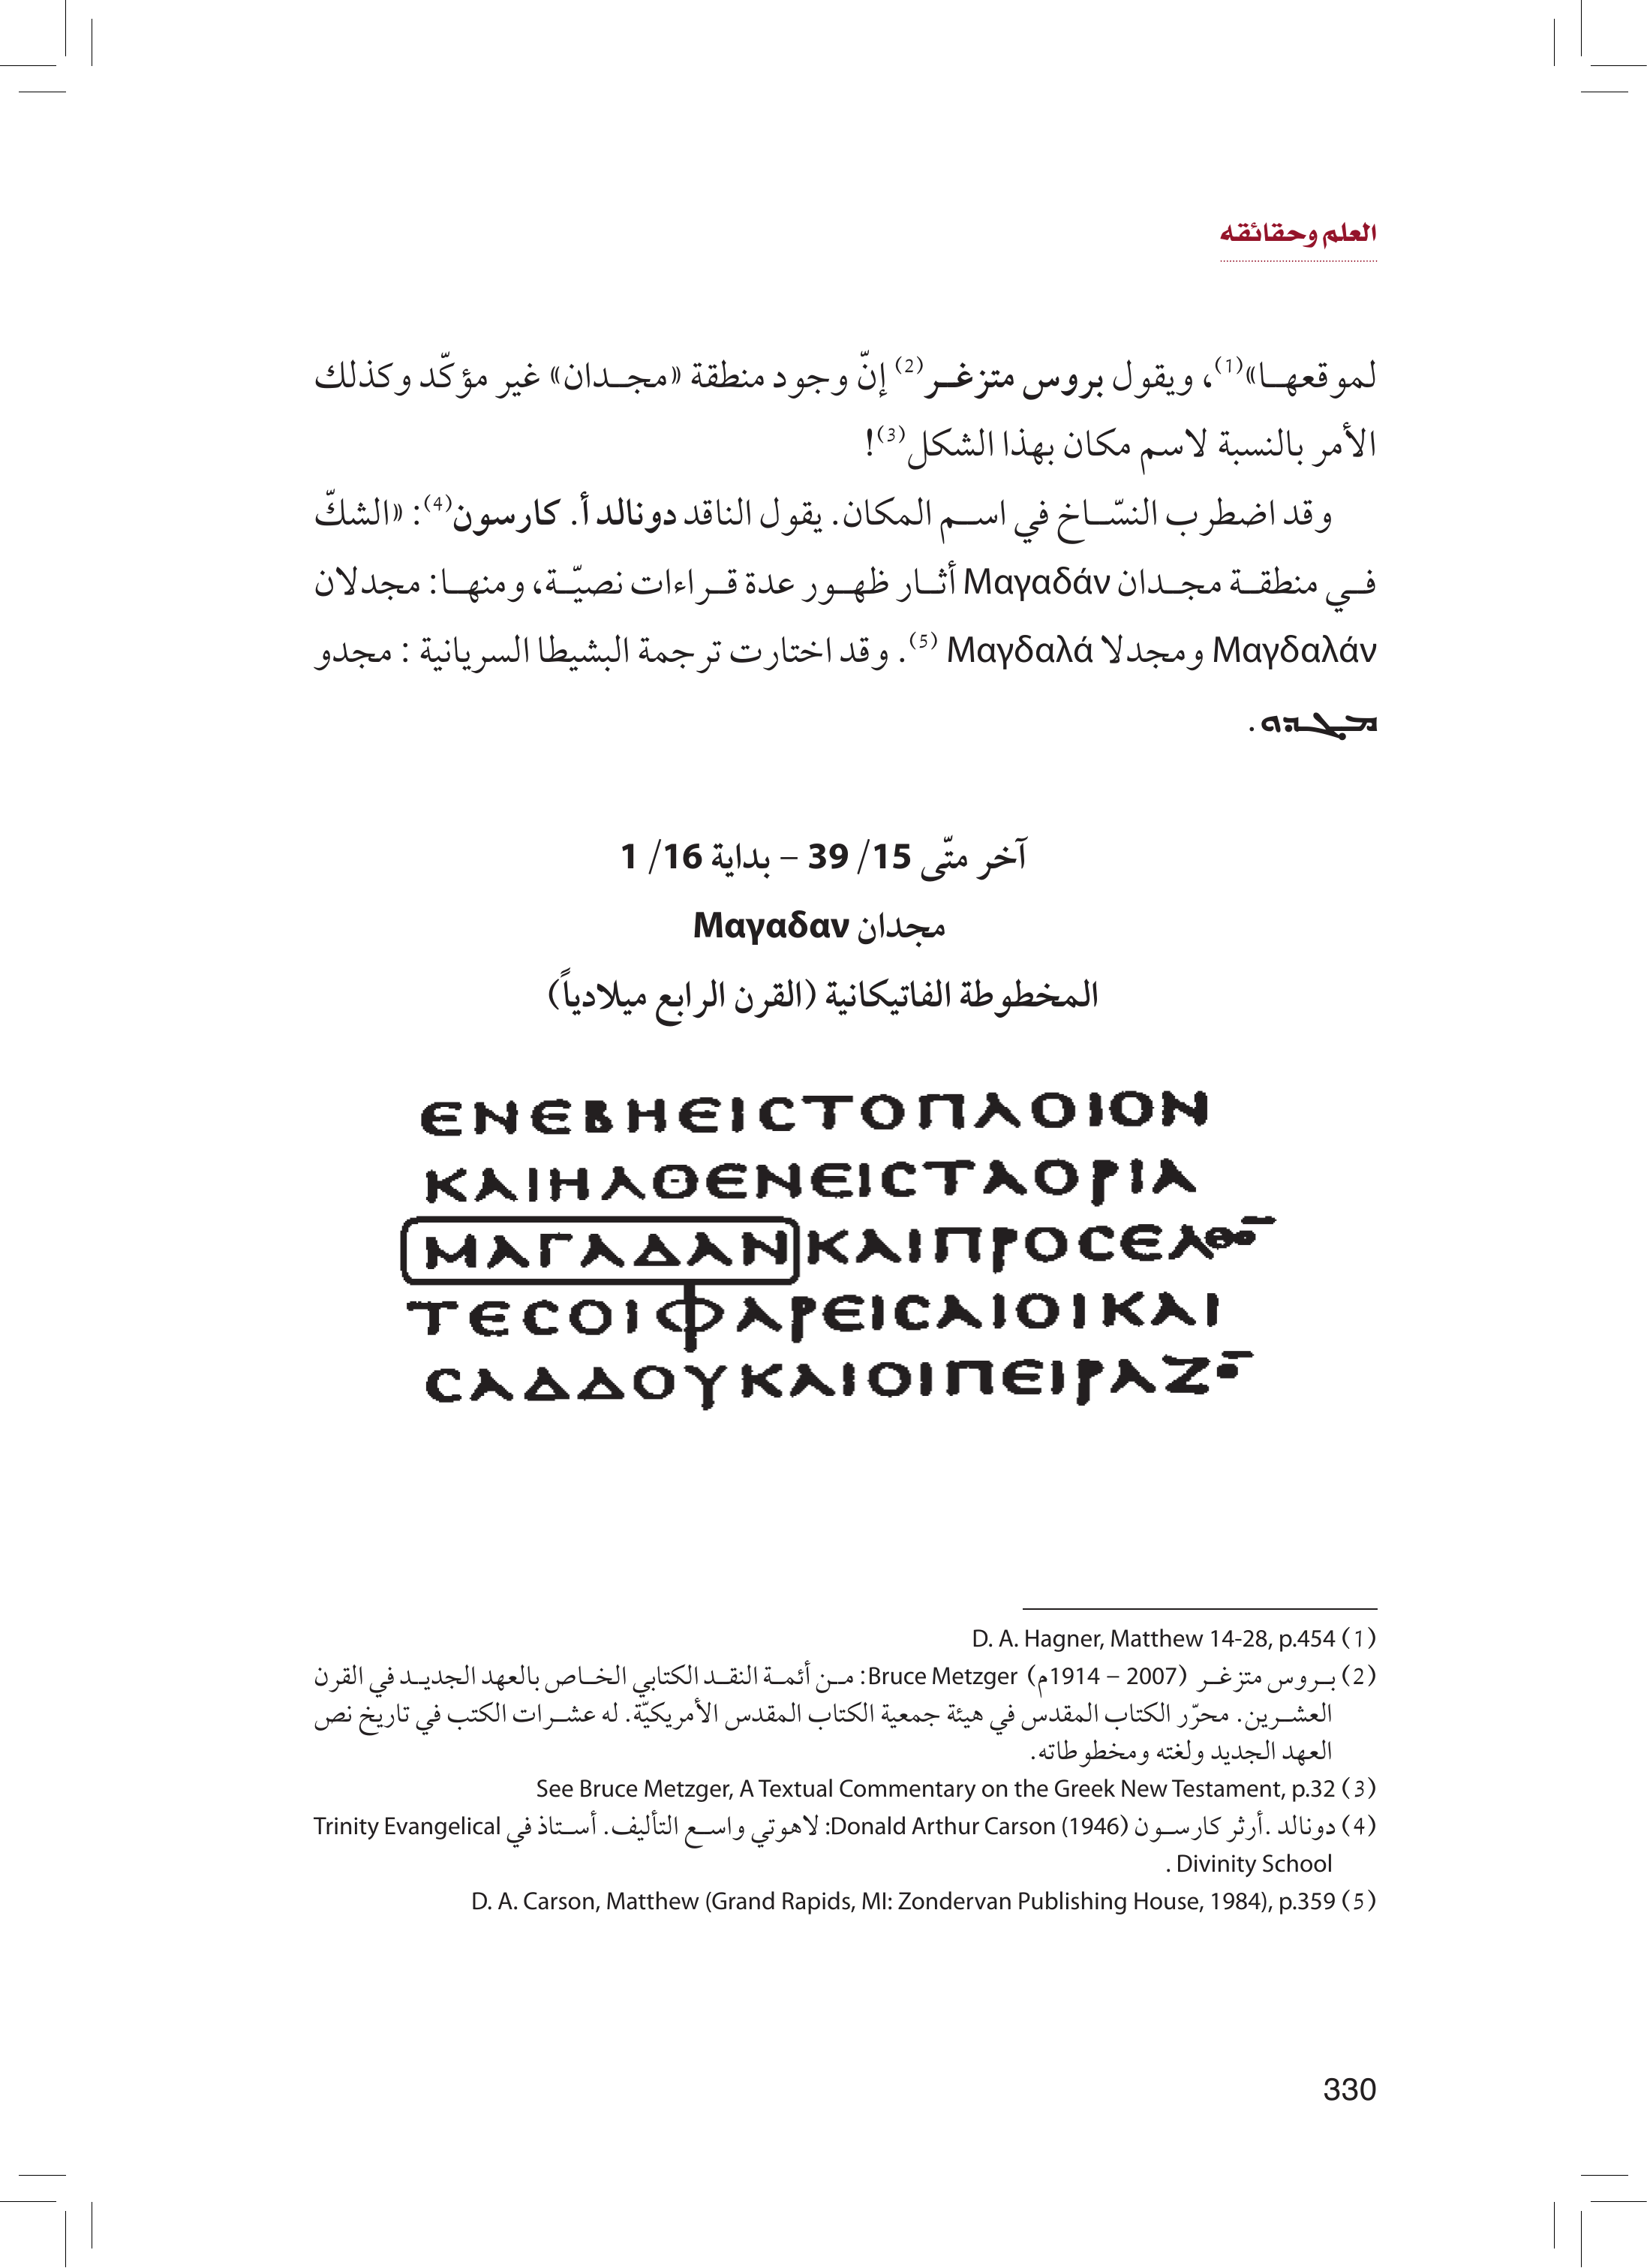 العلم وحقائقه
لموقعهـا»(1)، ويقول بروس متزغـر(2) إنّ وجود منطقة «مجـدان» غير مؤكّد وكذلك
الأمر بالنسبة لاسم مكان بهذا الشكل(3)!
وقد اضطرب النسّـاخ في اسـم المكان. يقول الناقد دونالد أ. كارسون(4): «الشكّ
فـي منطقـة مجـدان Μαγαδάν أثـار ظهـور عدة قـراءات نصيّـة، ومنهـا: مجدلان
Μαγδαλάν ومجدلا Μαγδαλά (5). وقد اختارت ترجمة البشيطا السريانية : مجدو
ܡܓܕܘ .
آخر متّى 15/ 39 – بداية 16/ 1
مجدان Μαγαδαν
المخطوطة الفاتيكانية (القرن الرابع ميلادياً)
ΕΝΕΒΗΕΙϹΤΟΠΛΟΙΟΝ
ΚΑΙΗΛΘΕΝΕΙϹΤΑΟΡΙΑ
ΜΑΓΑΔΑΝΚΑΙΠΡΟϹΕΛΘΟ̅
ΤΕϹΟΙΦΑΡΕΙϹΑΙΟΙΚΑΙ
ϹΑΔΔΟΥΚΑΙΟΙΠΕΙΡΑΖΟ̅
(1) D. A. Hagner, Matthew 14-28, p.454
(2) بـروس متزغـر (1914 – 2007م) Bruce Metzger: مـن أئمـة النقـد الكتابي الخـاص بالعهد الجديـد في القرن
العشـرين. محرّر الكتاب المقدس في هيئة جمعية الكتاب المقدس الأمريكيّة. له عشـرات الكتب في تاريخ نص
العهد الجديد ولغته ومخطوطاته.
(3) See Bruce Metzger, A Textual Commentary on the Greek New Testament, p.32
(4) دونالد .أرثر كارسـون Donald Arthur Carson (1946): لاهوتي واسـع التأليف. أسـتاذ في Trinity Evangelical
Divinity School .
(5) D. A. Carson, Matthew (Grand Rapids, MI: Zondervan Publishing House, 1984), p.359
330